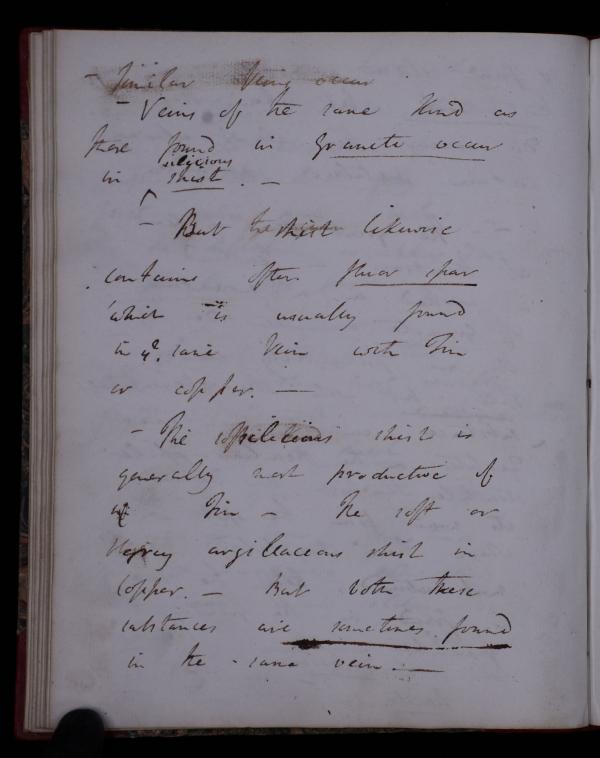 - Similar Veins occur
- Veins of the same kind as
those found in Granite occur
siliceous
in shist. -
- But shist likewise
contains often fluor spar
which is usually found
in same Vein with Tin
or copper. -
- The shist is
generally most productive of
Tin - The soft or
argillaceous shist in
Copper. - But both these
substances are sometimes found
in the same vein. -